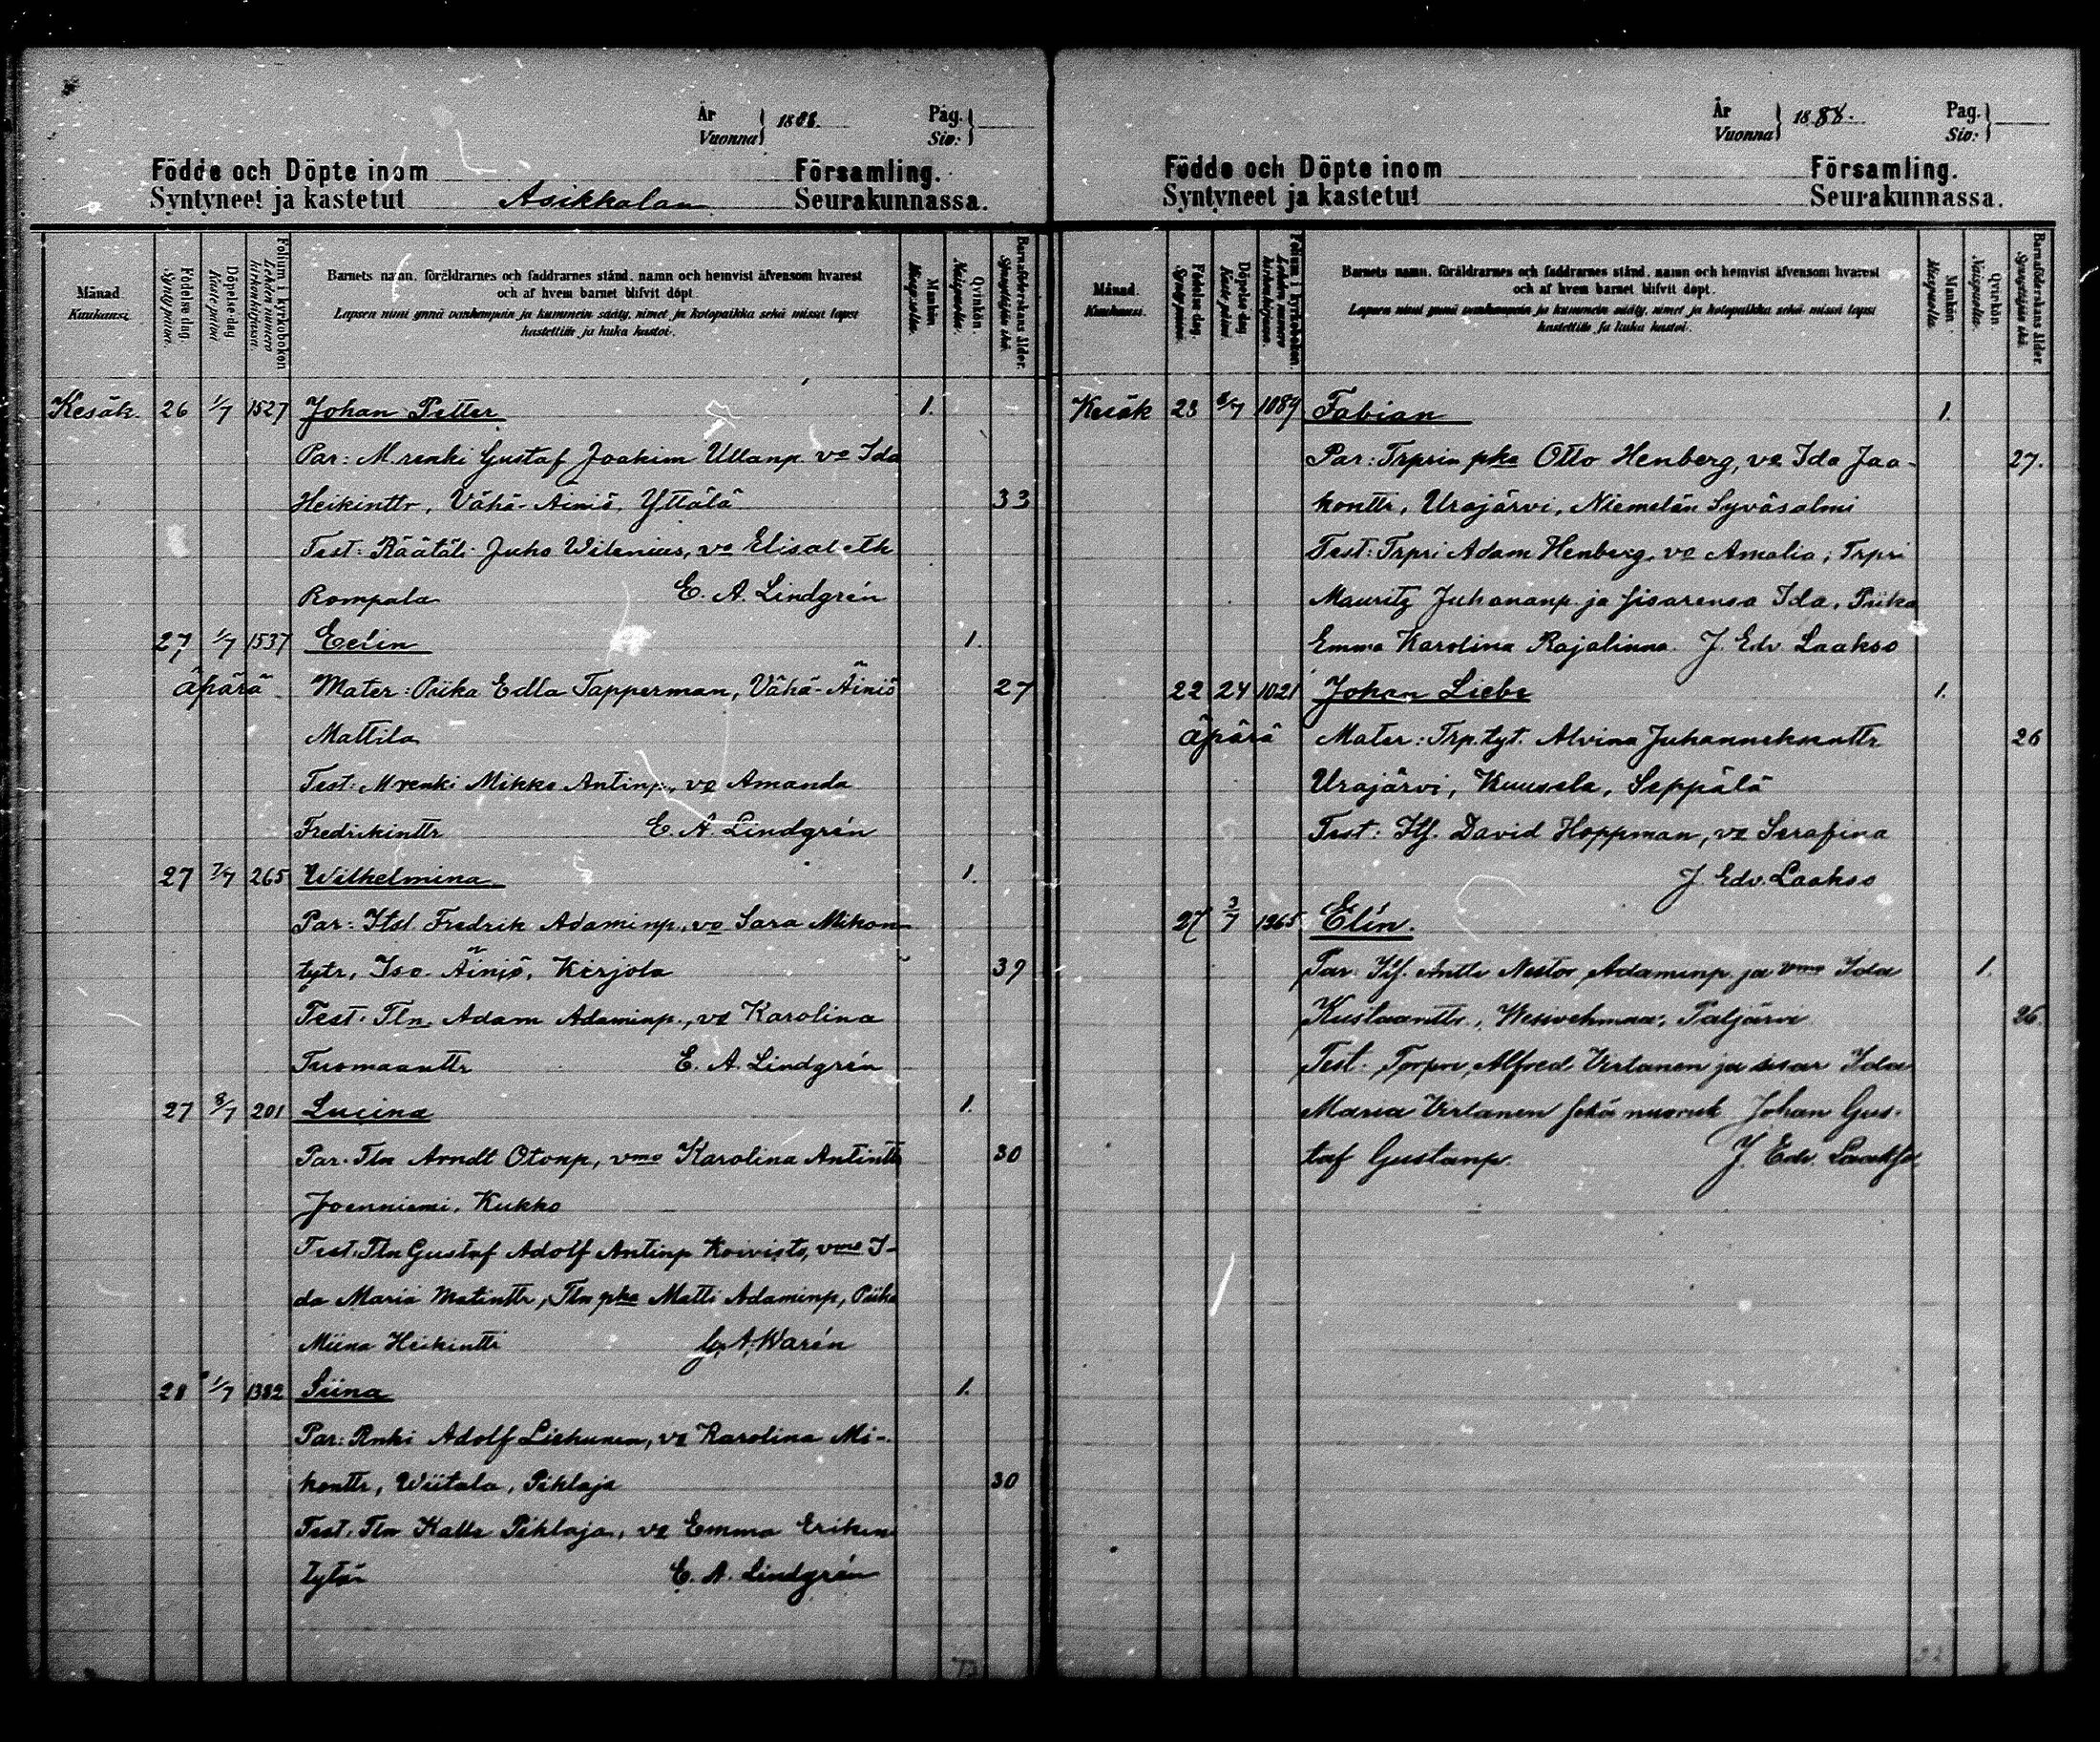 År
Vuonna } 1888.
Pag.
Siv: }
Födde och Döpte inom Församling.
Syntyneet ja kastetut Asikkalan Seurakunnassa.
Månad.
Kuukausi.
Födelse dag.
Syntypäivä.
Döpelse-dag
Kaste-päivä
Folium i kyrkoboken
Lehden numero kirkonkirjassa.
Barnets namn, föräldrarnes och faddrarnes stånd, namn och hemvist äfvensom hvarest
och af hvem barnet blifvit döpt.
Lapsen nimi ynnä vanhempain ja kummein sääty, nimet ja kotopaikka sekä missä lapsi
kastettiin ja kuka kastoi.
Mankön
Miespuolia.
Qvinkön
Naispuolia.
Barnaföderskans ålder.
Synnyttäjän ikä.
Kesäk. 26 1/7 1527 Johan Petter 1.
Par: M. renki Gustaf Joakim Ullanp. vo Ida
Heikinttr, Vähä-Äiniö, Yttälä 33
Test: Räätäli Juho Wilenius, vo Elisabeth
Rompala E. A. Lindgrén
27 1/7 1537 Eelin 1.
äpärä Mater: Piika Edla Tapperman, Vähä-Äiniö 27
Mattila
Test: M renki Mikko Antinp., vo Amanda
Fredrikinttr E. A. Lindgrén
27 7/7 265 Wilhelmina 1.
Par: Itsl. Fredrik Adaminp., vo Sara Mikon
tytr, Iso-Äiniö, Kirjola 39
Test. Tln. Adam Adaminp., vo Karolina
Tuomaanttr E. A. Lindgrén
27 8/7 201 Lucina 1.
Par. Tln Arndt Otonp, vmo Karolina Antinttr 30
Joenniemi, Kukko
Test. Tln Gustaf Adolf Antinp Koivisto, vmo I-
da Maria Matinttr, Tln pka Matti Adaminp, Piika
Miina Heikinttr G. A. Warén
28 1/7 1382 Siina 1.
Par: Rnki Adolf Liehunen, vo Karolina Mi-
konttr, Wiitala, Pihlaja 30
Test. Tln Kalle Pihlaja, vo Emma Erikin
tytär E. A. Lindgrén
År
Vuonna } 1888.
Pag.
Siv: }
Födde och Döpte inom Församling.
Syntyneet ja kastetut Seurakunnassa.
Månad.
Kuukausi.
Födelse dag.
Syntypäivä.
Döpelse-dag
Kaste-päivä
Folium i kyrkoboken
Lehden numero kirkonkirjassa.
Barnets namn, föräldrarnes och faddrarnes stånd, namn och hemvist äfvensom hvarest
och af hvem barnet blifvit döpt.
Lapsen nimi ynnä vanhempain ja kummein sääty, nimet ja kotopaikka sekä missä lapsi
kastettiin ja kuka kastoi.
Mankön
Miespuolia.
Qvinkön
Naispuolia.
Barnaföderskans ålder.
Synnyttäjän ikä.
Kesäk 23 8/7 1089 Fabian 1.
Par: Trprin pka Otto Henberg, vo Ida Jaa- 27.
konttr, Urajärvi, Niemelän Syväsalmi
Test: Trpri Adam Henberg, vo Amalia; Trpri
Mauritz Juhananp. ja sisarensa Ida, Piika
Emma Karolina Rajalinna. J. Edv Laakso
22 24 1021 Johan Liebe 1.
äpärä Mater: Trp. tyt. Alvina Juhanneksenttr 26
Urajärvi, Kuusela, Seppälä
Test: Itf. David Hoppman, vo Serafina
J. Edv. Laakso
27 3/7 1365 Elin.
Par: Itf. Antti Nestor Adaminp. ja vmo Ida 1.
Kustaanttr., Wesivehmaa, Paljärvi 26.
Test. Torpri Alfred Virtanen ja sisar Ida
Maria Virtanen sekä nuoruk Johan Gus-
taf Gustanp. J. Edv. Laakso